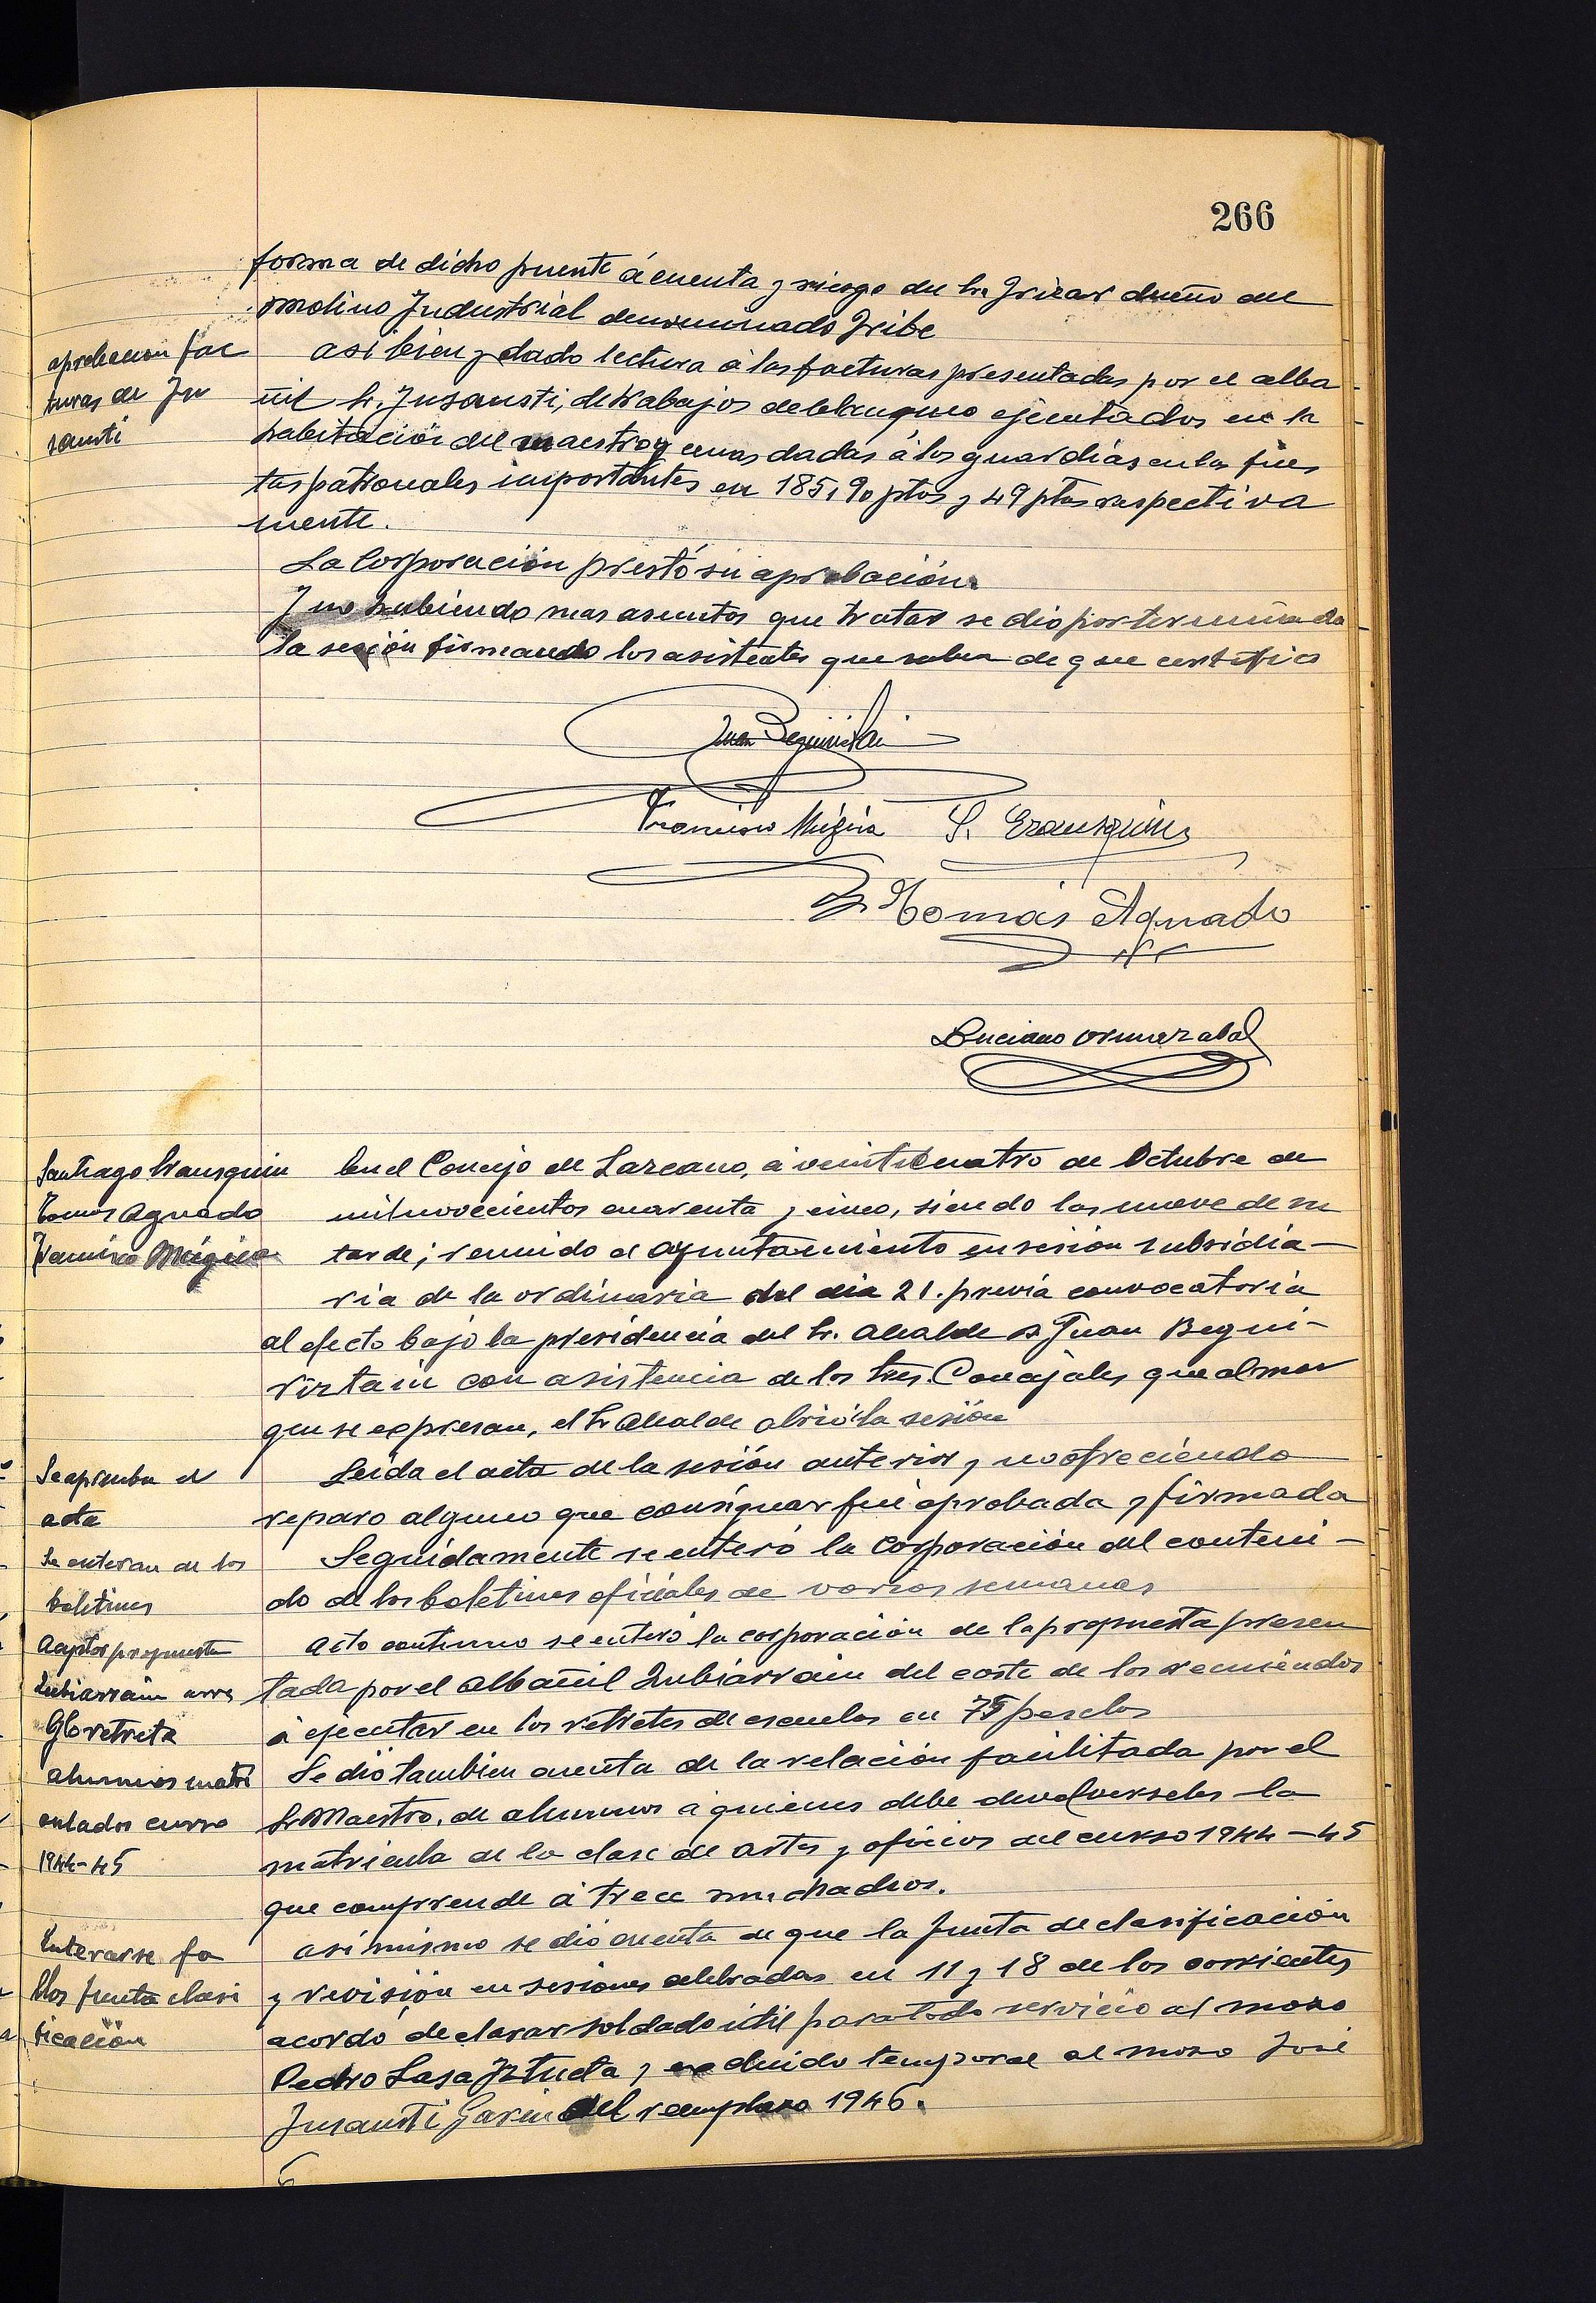 266
forma de dicho puente á cuenta y riesgo del Sr. Irizar dueño del
molino Industrial denominado Iribe
aprobacion fac
turas de In
sausti
asi bien y dado lectura á las facturas presentadas por el alba
ñil Sr. Insausti, de trabajos de blanqueo ejecutados en la
habitación del maestro y cenas dadas á los guardias en las fies
tas patronales importantes en 185,90 ptas y 49 ptas respectiva
mente.
La Corporación prestó su aprobación.
Y no habiendo mas asuntos que tratar se dio por terminada
la sesión firmando los asistentes que saben de que certifico
Juan Beguiristain
Francisco Múgica S. Erausquin
Tomás Aguado
Luciano Ormazabal
Santiago Erausquin
Tomás Aguado
Francisco Múgica
En el Concejo de Lazcano, á veinticuatro de Octubre de
mil novecientos cuarenta y cinco, siendo las nueve de su
tarde; reunido el ayuntamiento en sesión subsidia-
ria de la ordinaria del dia 21. previa convocatoria
al efecto bajo la presidencia del Sr. Alcalde D. Juan Begui-
riztain con asistencia de los tres Concejales que al mar
gen se expresan, el Sr Alcalde abrió la sesión
Se aprueba el
acta
Leida el acta de la sesión anterior y no ofreciendo
reparo alguno que consignar fué aprobada y firmada
Se enteran de los
boletines
Seguidamente se enteró la Corporación del conteni-
do de los boletines oficiales de varias semanas
Aceptar propuesta
Zubiarrain arre
glo retrete
Acto continuo se enteró la corporación de la propuesta presen
tada por el albañil Zubiarrain del coste de los remiendos
á ejecutar en los retretes de escuelas en 75 pesetas
alumnos matri
culados curso
1944-45
Se dio tambien cuenta de la relación facilitada por el
Sr Maestro, de alumnos á quienes debe devolverseles la
matricula de la clase de artes y oficios del curso 1944-45
que comprende á trece muchachos.
Enterarse fa
llos junta clasi
ficación
asimismo se dió cuenta de que la Junta de clasificación
y revisión en sesiones celebradas en 11 y 18 de los corrientes
acordó declarar soldado útil para todo servicio al mozo
Pedro Lasa Iztueta y excluido temporal al mozo José
Insausti Garin del reemplazo 1946.